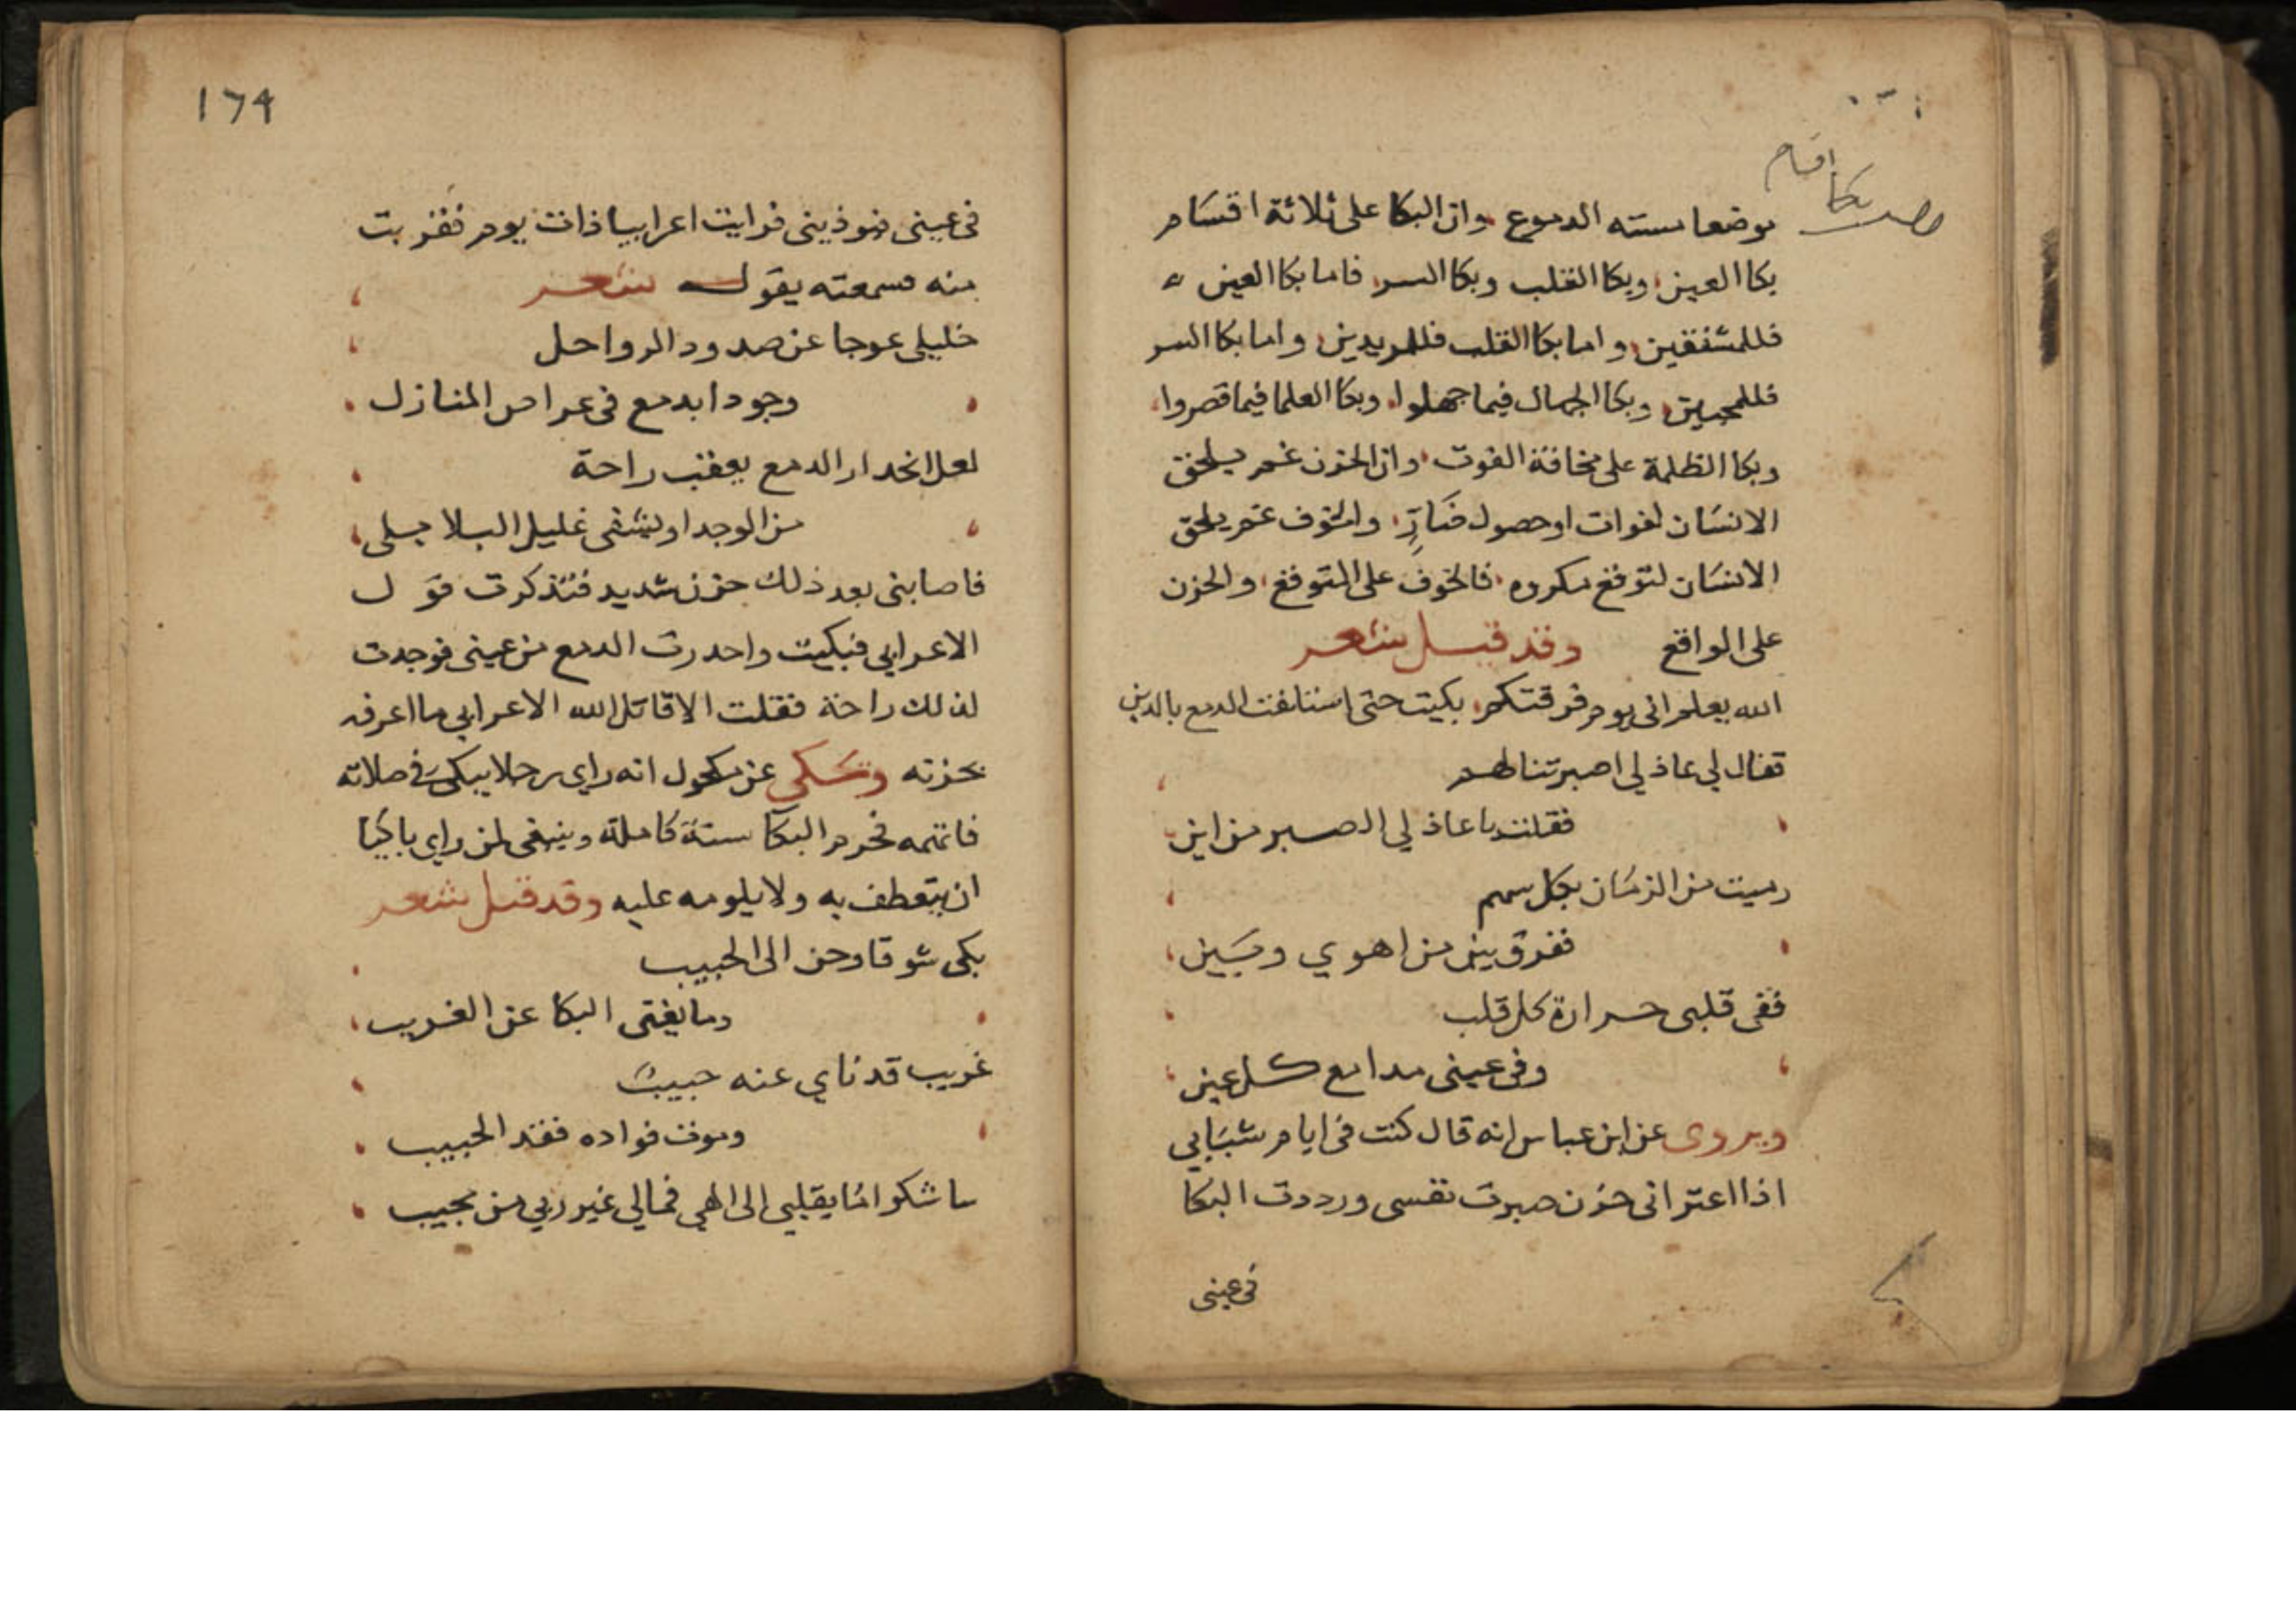 اقسام
بكا
موضعا مسته الدموع وان البكا على ثلاثة اقسام
بكا العين وبكا القلب وبكا السر فاما بكا العين
فللمشفقين واما بكا القلب فللمريدين واما بكا السر
فللمحبين وبكا الجهال فيما جهلوا وبكا العلما فيما قصروا
وبكا الظلمة على مخافة الفوت وان الحزن غم يلحق
الانسان لفوات او حصول ضار والخوف غم يلحق
الانسان لتوقع مكروه فالخوف على المتوقع والحزن
على الواقع وقد قيل شعر
الله يعلم اني يوم فرقتكم بكيت حتى استانفت الدمع بالدين
فقال لي عاذلي اصبرتنا لهم
فقلت يا عاذلي الصبر من اين
رميت من الزمان بكل سهم
ففرق بين من اهوي وبيني
ففي قلبي حرارة كل قلب
وفي عيني مدامع كل عين
ويروى عن ابن عباس انه قال كنت في ايام شبابي
اذا اعتراني حزن صبرت نفسي ورددت البكا
في عيني
١٦٩
في عيني فيوذيني فرايت اعرابيا ذات يوم فقربت
منه فسمعته يقول شعر
خليلي عوجا عن صدود الرواحل
وجودا بدمع في عراص المنازل
لعل انحدار الدمع يعقب راحة
من الوجد او يشفي غليل البلابلي
فاصابني بعد ذلك حزن شديد فتذكرت قول
الاعرابي فبكيت واحدرت الدمع من عيني فوجدت
لذلك راحة فقلت الا قاتل الله الاعرابي ما اعرفه
بحزنه وحكي عن مكحول انه راى رجلا يبكي في صلاته
فاتهمه فحرم البكا سنة كاملة وينبغي لمن راي باكيا
ان يتعطف به ولا يلومه عليه وقد قيل شعر
بكى شوقا وحن الى الحبيب
وما يغني البكا عن الغريب
غريب قد ناي عنه حبيب
وموت فواده فقد الحبيب
ساشكو ما بقلبي الى الهي فمالي غير ربي من مجيب